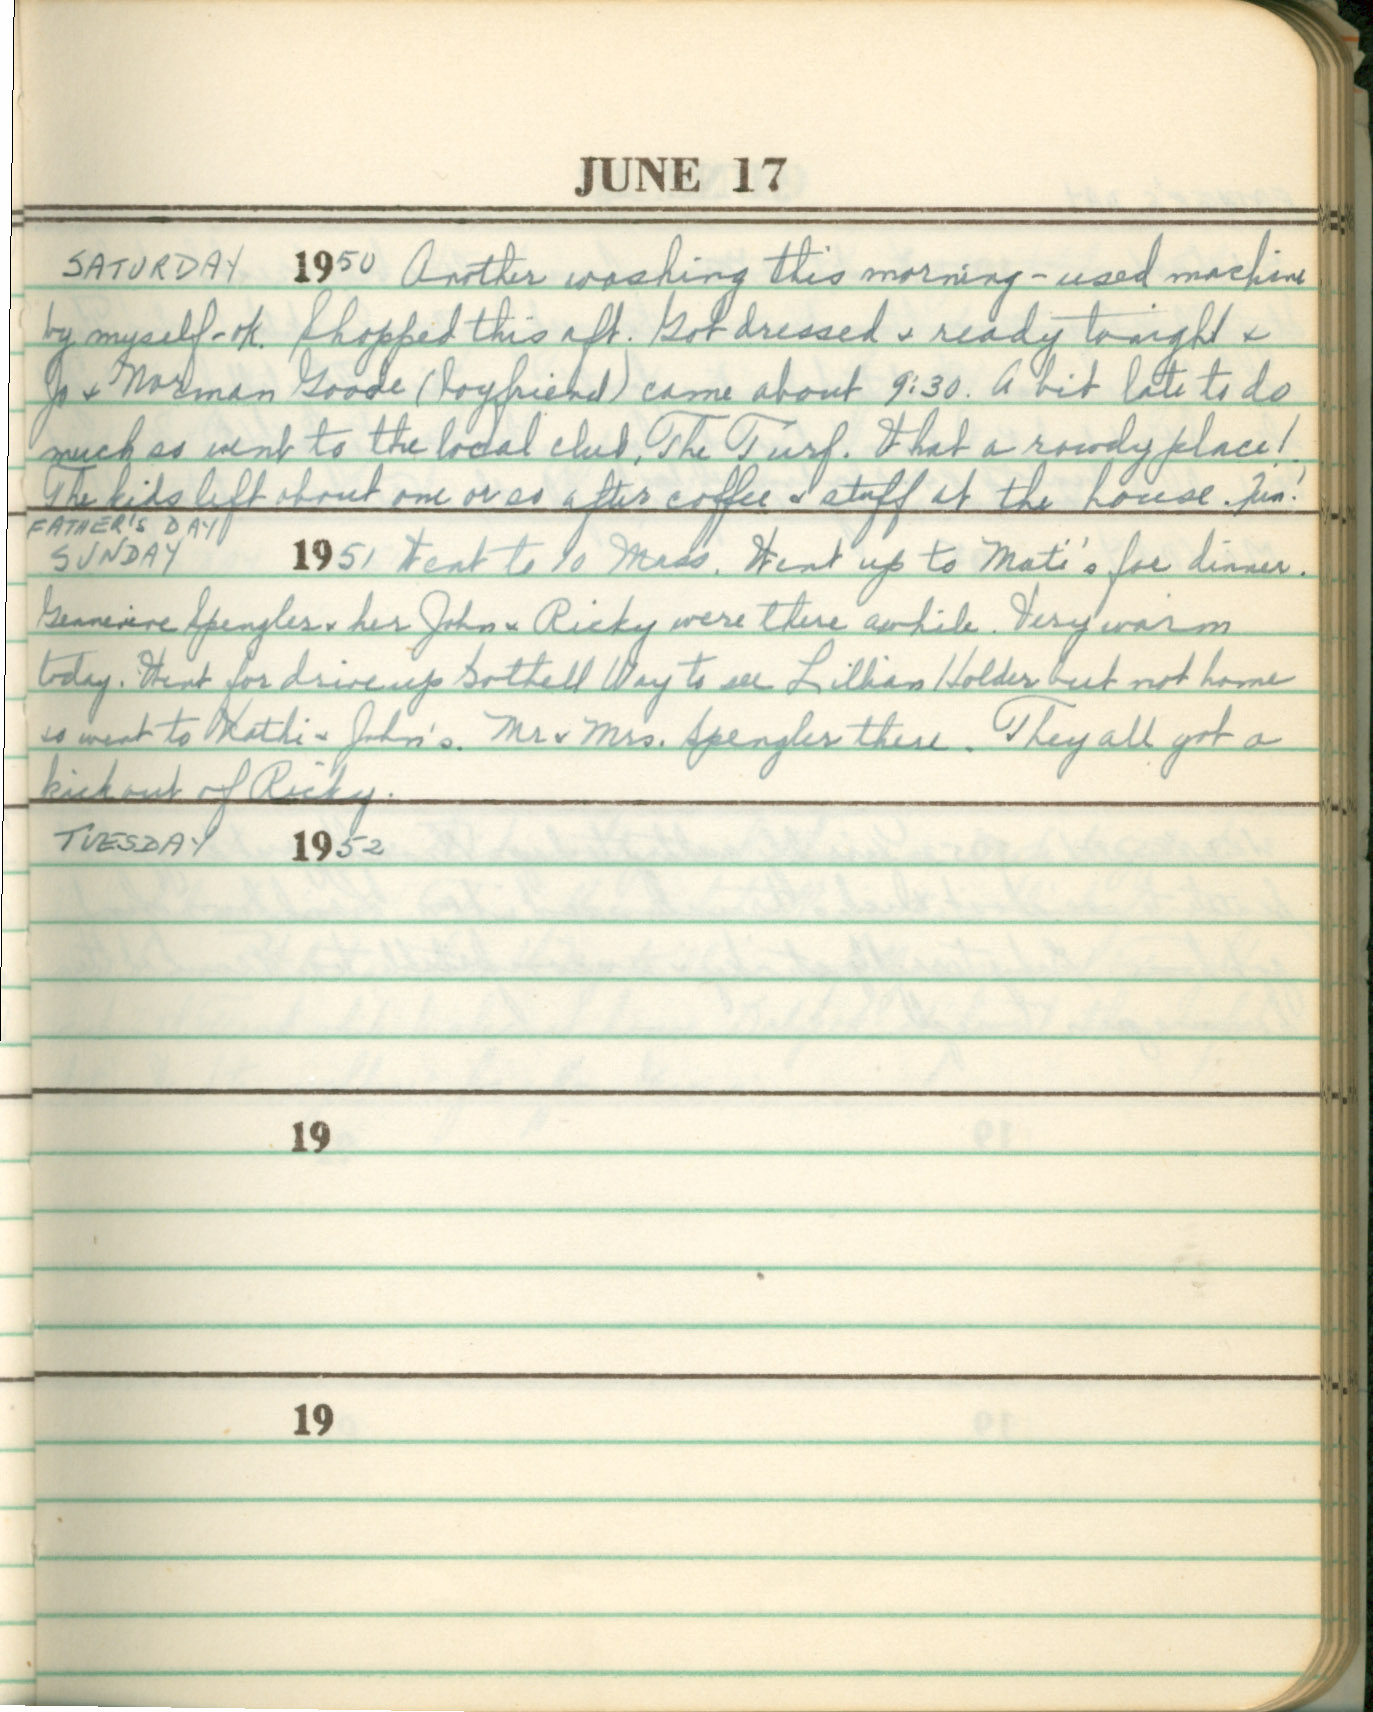 JUNE 17
SATURDAY 1950 Another washing this morning - used machine
by myself - ok. Shopped this aft. Got dressed & ready tonight &
Jo & Norman Goode (boyfriend) came about 9:30. A bit late to do
much so went to the local club, The Turf. What a rowdy place!
The kids left about one or so after coffee & stuff at the house. Fun!
FATHER'S DAY
SUNDAY 1951 Went to 10 Mass. Went up to Mati's for dinner.
Genevieve Spengler & her John & Ricky were there awhile. Very warm
today. Went for drive up Bothell Way to see Lillian Holder but not home
so went to Mathi & John's. Mr & Mrs. Spengler there. They all got a
kick out of Ricky.
TUESDAY 1952
19
19